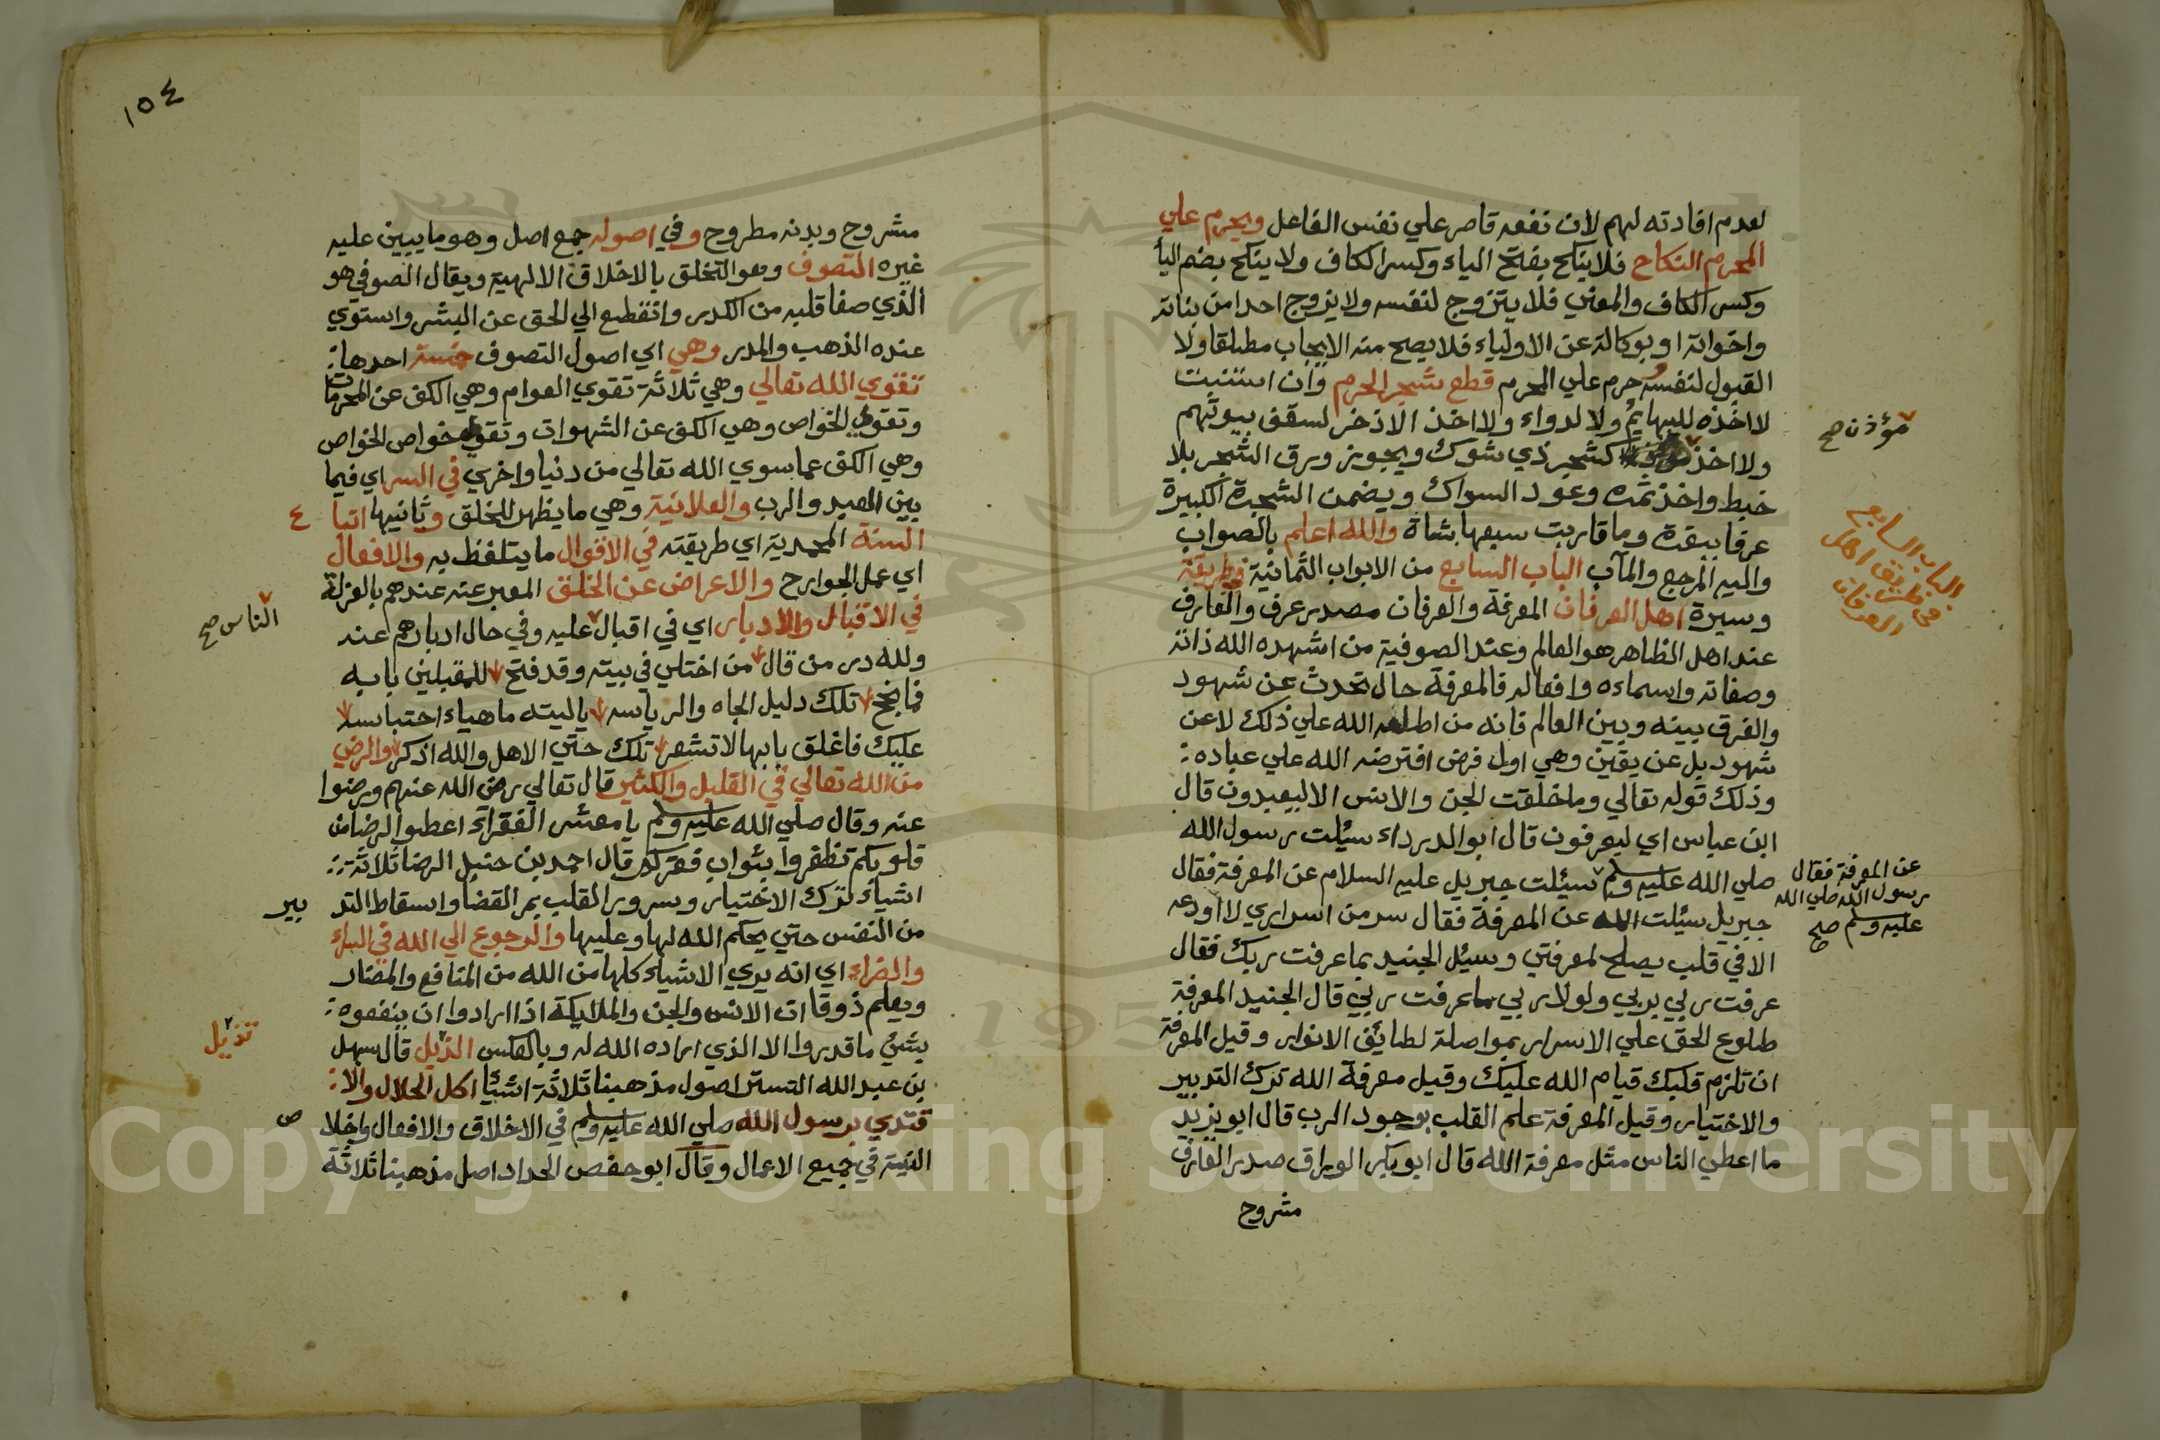 لعدم افادته لهم لان نفعه قاصر علي نفس الفاعل ويحرم علي
المحرم النكاح فلا ينكح بفتح الياء وكسر الكاف ولا ينكح بضم اليا
وكسر الكاف والمعني فلا يتزوج لنفسه ولا يزوج احدا من بناته
واخواته او بوكالة عن الاولياء فلا يصح منه الايجاب مطلقا ولا
القبول لنفسه وحرم علي المحرم قطع شجر الحرم وان استنبت
لا اخذه للبهايم ولا لدواء ولا اخذ الاذخر لسقف بيوتهم
ولا اخذ كشجر ذي شوك ويجوز ورق الشجر بلا
مؤذن صح
خبط واخذ ثمره وعود السواك ويضمن الشجرة الكبيرة
عرفا ببقرة وما قاربت سبعها بشاة والله اعلم بالصواب
واليه المرجع والمآب الباب السابع من الابواب الثمانية في طريقة
الباب السابع
في طريق اهل
العرفان
وسيرة اهل العرفان المعرفة والعرفان مصدر عرف والعارف
عند اهل الظاهر هو العالم وعند الصوفية من اشهده الله ذاته
وصفاته واسماءه وافعاله فالمعرفة حال تحدث عن شهود
والفرق بينه وبين العالم فانه من اطلعه الله علي ذلك لا عن
شهود بل عن يقين وهي اول فرض افترضه الله علي عباده
وذلك قوله تعالي وما خلقت الجن والانس الا ليعبدون قال
ابن عباس اي ليعرفون قال ابو الدرداء سيلت رسول الله
صلي الله عليه وسلم سيلت جبريل عليه السلام عن المعرفة فقال
عن المعرفة فقال
رسول الله صلي الله
عليه وسلم صح
جبريل سيلت الله عن المعرفة فقال سر من اسراري لا اودعه
الا في قلب يصلح لمعرفتي وسيل الجنيد بما عرفت ربك فقال
عرفت ربي بربي ولولا ربي ما عرفت ربي قال الجنيد المعرفة
طلوع الحق علي الاسرار بمواصلة لطايف الانوار وقيل المعرفة
ان تلزم قلبك قيام الله عليك وقيل معرفة الله ترك التدبير
والاختيار وقيل المعرفة علم القلب بوجود الرب قال ابو يزيد
ما اعطي الناس مثل معرفة الله قال ابو بكر الوراق صدر العارف
مشروح
١٥٤
مشروح وبدنه مطروح وفي اصوله جمع اصل وهو ما يبين عليه
غيره التصوف وهو التخلق بالاخلاق الالهية ويقال الصوفي هو
الذي صفا قلبه من الكدر وانقطع الي الحق عن البشر واستوي
عنده الذهب والمدر وهي اي اصول التصوف خمسة احدها
تقوي الله تعالي وهي ثلاثة تقوي العوام وهي الكف عن المحرمات
وتقوي الخواص وهي الكف عن الشهوات وتقوي خواص الخواص
وهي الكف عما سوي الله تعالي من دنيا واخري في السر اي فيما
بين العبد والرب والعلانية وهي ما يظهر للخلق وثانيها اتبا
ع
السنة المحمدية اي طريقته في الاقوال ما يتلفظ به والافعال
اي عمل الجوارح والاعراض عن الخلق المعبر عنه عندهم بالعزلة
في الاقبال والادبار اي في اقبال عليه وفي حال ادبارهم عنه
الناس صح
ولله در من قال من اختلي في بيته وقد فتح للمقبلين بابه
فما نجح تلك دليل الجاه والرياسه ياليته ما هياء احتباسه
عليك فاغلق بابها لا تشعر تلك حتي الاهل والله اذكر والرضي
من الله تعالي في القليل والكثير قال تعالي رضي الله عنهم ورضوا
عنه وقال صلي الله عليه وسلم يا معشر الفقراء اعطوا الرضا من
قلوبكم تظفروا بثواب فقركم قال احمد بن حنبل الرضا ثلاثة
اشياء ترك الاختيار وسرور القلب بمر القضا واسقاط التد
بير
من النفس حتي يحكم الله لها وعليها والرجوع الي الله في السراء
والضراء اي انه يري الاشياء كلها من الله من المنافع والمضار
ويعلم ذوقا ان الانس والجن والملايكة اذا ارادوا ان ينفعوه
بشئ ما قدروا الا الذي اراده الله له وبالعكس الذيل قال سهل
تذييل
بن عبد الله التستر اصول مذهبنا ثلاثة اشيا اكل الحلال والا
قتدي برسول الله صلي الله عليه وسلم في الاخلاق والافعال واخلا
ص
النية في جميع الاعمال وقال ابو حفص الحداد اصل مذهبنا ثلاثة
1957
Copyright © King Saud University